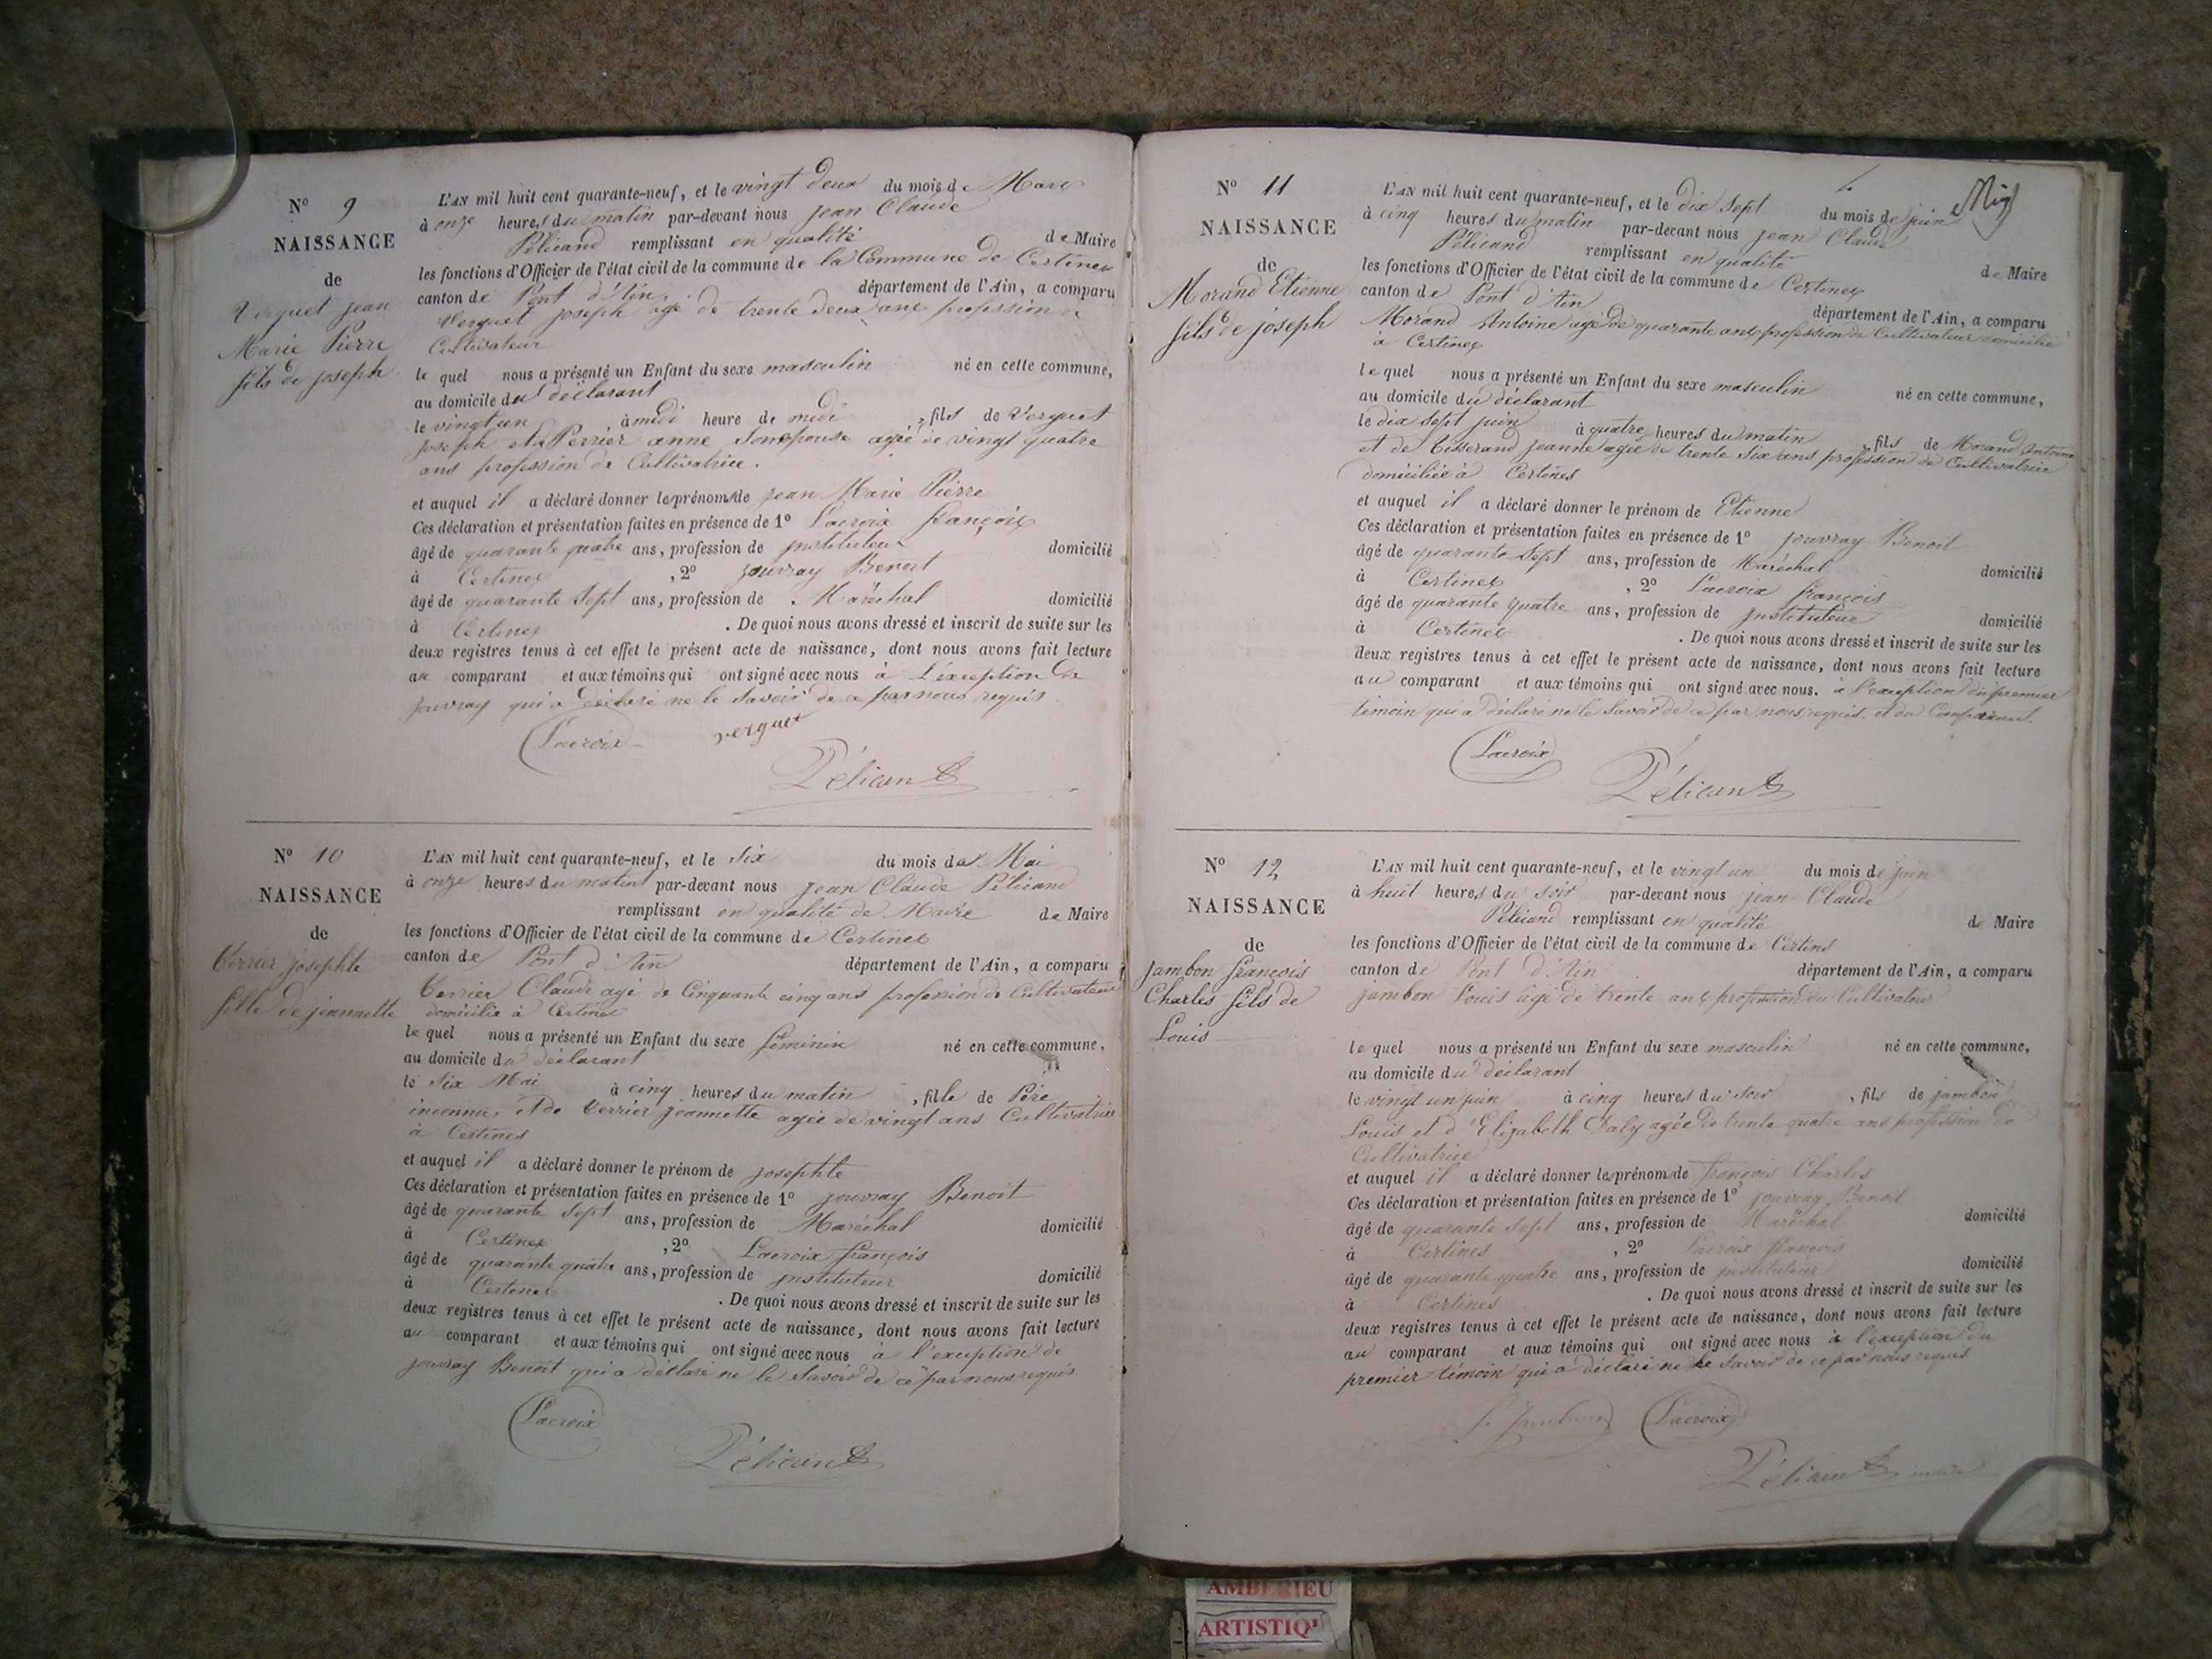 N° 9
NAISSANCE
de
Verguet jean
Marie Pierre
fils de joseph
L'AN mil huit cent quarante-neuf, et le vingt deux du mois de Mars
à onze heures du matin par-devant nous jean Claude
Pélicand remplissant en qualité de Maire
les fonctions d'Officier de l'état civil de la commune de la Commune de Certines
canton de Pont d'Ain département de l'Ain, a comparu
Verguet joseph agé de trente deux ans profession de
Cultivateur
le quel nous a présenté un Enfant du sexe masculin né en cette commune,
au domicile du déclarant
le vingt un à midi heure de midi , fils de Verguet
joseph et de Perrier anne son épouse agée de vingt quatre
ans profession de Cultivatrice.
et auquel il a déclaré donner les prénoms de jean Marie Pierre
Ces déclaration et présentation faites en présence de 1° Lacroix françois
âgé de quarante quatre ans, profession de instituteur domicilié
à Certines , 2° jouvray Benoit
âgé de quarante sept ans, profession de Maréchal domicilié
à Certines . De quoi nous avons dressé et inscrit de suite sur les
deux registres tenus à cet effet le présent acte de naissance, dont nous avons fait lecture
au comparant et aux témoins qui ont signé avec nous à l'exception de
jouvray qui a déclaré ne le savoir de ce par nous requis
Lacroix verguet
Pélicand
N° 10
NAISSANCE
de
Verrier josephte
fille de jeannette
L'AN mil huit cent quarante-neuf, et le six du mois de Mai
à onze heures du matin par-devant nous jean Claude Pélicand
remplissant en qualité de Maire de Maire
les fonctions d'Officier de l'état civil de la commune de Certines
canton de Pont d'Ain département de l'Ain, a comparu
Verrier Claude agé de cinquante cinq ans profession de Cultivateur
domicilié à Certines
le quel nous a présenté un Enfant du sexe féminin né en cette commune,
au domicile du déclarant
le six Mai à cinq heures du matin , fille de Père
inconnu, et de Verrier jeannette agée de vingt ans Cultivatrice
à Certines
et auquel il a déclaré donner le prénom de josephte
Ces déclaration et présentation faites en présence de 1° jouvray Benoit
âgé de quarante sept ans, profession de Maréchal domicilié
à Certines , 2° Lacroix françois
âgé de quarante quatre ans, profession de instituteur domicilié
à Certines . De quoi nous avons dressé et inscrit de suite sur les
deux registres tenus à cet effet le présent acte de naissance, dont nous avons fait lecture
au comparant et aux témoins qui ont signé avec nous à l'exception de
jouvray Benoit qui a déclaré ne le savoir de ce par nous requis
Lacroix
Pélicand
N° 11
NAISSANCE
de
Morand Etienne
fils de joseph
L'AN mil huit cent quarante-neuf, et le dix sept du mois de juin
à cinq heures du matin par-devant nous jean Claude
Pélicand remplissant en qualité de Maire
les fonctions d'Officier de l'état civil de la commune de Certines
canton de Pont d'Ain département de l'Ain, a comparu
Morand Antoine agé de quarante ans profession de Cultivateur domicilié
à Certines
le quel nous a présenté un Enfant du sexe masculin né en cette commune,
au domicile du déclarant
le dix sept juin à quatre heures du matin , fils de Morand Antoine
et de Tisserand jeanne agée de trente six ans profession de Cultivatrice
domiciliée à Certines
et auquel il a déclaré donner le prénom de Etienne
Ces déclaration et présentation faites en présence de 1° jouvray Benoit
âgé de quarante sept ans, profession de Maréchal domicilié
à Certines , 2° Lacroix françois
âgé de quarante quatre ans, profession de instituteur domicilié
à Certines . De quoi nous avons dressé et inscrit de suite sur les
deux registres tenus à cet effet le présent acte de naissance, dont nous avons fait lecture
au comparant et aux témoins qui ont signé avec nous. à l'exception du premier
témoin qui a déclaré ne le savoir de ce par nous requis. et du Comparant.
Lacroix
Pélicand
N° 12
NAISSANCE
de
jambon françois
Charles fils de
Louis
L'AN mil huit cent quarante-neuf, et le vingt un du mois de juin
à huit heures du soir par-devant nous jean Claude
Pélicand remplissant en qualité de Maire
les fonctions d'Officier de l'état civil de la commune de Certines
canton de Pont d'Ain département de l'Ain, a comparu
jambon Louis âgé de trente ans profession de Cultivateur
le quel nous a présenté un Enfant du sexe masculin né en cette commune,
au domicile du déclarant
le vingt un juin à cinq heures du soir , fils de jambon
Louis et d'Elizabeth agée de trente quatre ans profession de
Cultivatrice
et auquel il a déclaré donner les prénoms de françois Charles
Ces déclaration et présentation faites en présence de 1° jouvray Benoit
âgé de quarante sept ans, profession de Maréchal domicilié
à Certines , 2° Lacroix françois
âgé de quarante quatre ans, profession de instituteur domicilié
à Certines . De quoi nous avons dressé et inscrit de suite sur les
deux registres tenus à cet effet le présent acte de naissance, dont nous avons fait lecture
au comparant et aux témoins qui ont signé avec nous à l'exception du
premier témoin qui a déclaré ne le savoir de ce par nous requis
Lacroix
Pélicand maire
AMBERIEU
ARTISTIQU